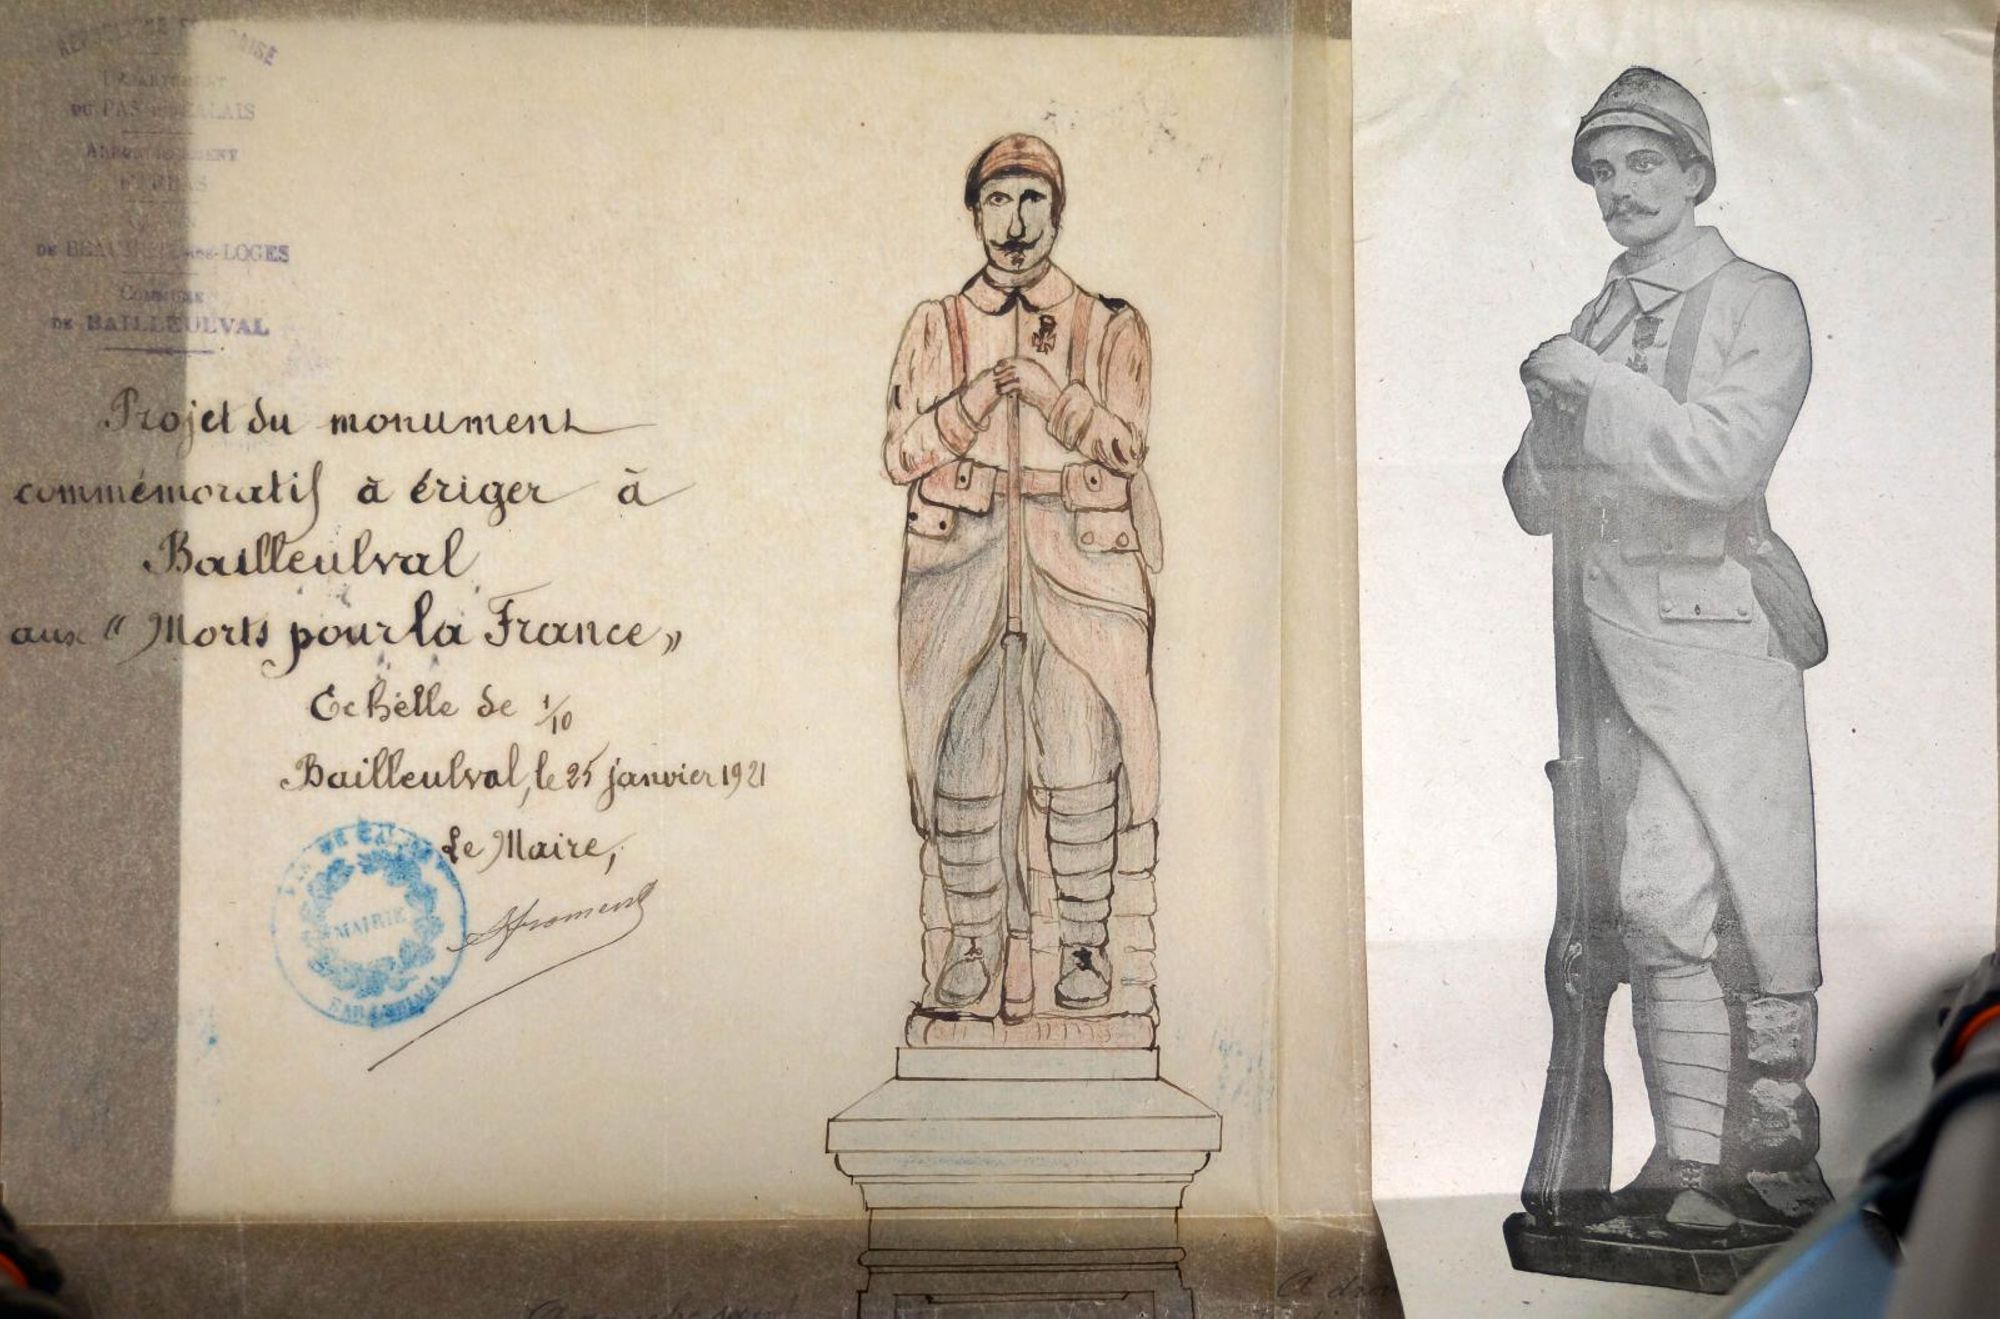 RÉPUBLIQUE FRANÇAISE
DÉPARTEMENT
DU PAS-DE-CALAIS
ARRONDISSEMENT
D'ARRAS
DE BEAUMETZ-LES-LOGES
COMMUNE
DE BAILLEULVAL
Projet du monument
commémoratif à ériger à
Bailleulval
aux "Morts pour la France"
Echelle de 1/10
Bailleulval, le 25 janvier 1921
Le Maire,
MAIRIE
A dro